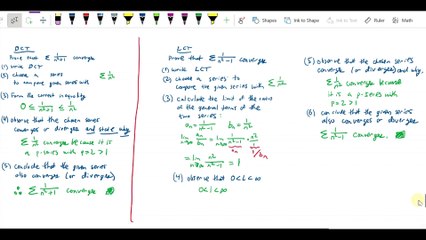 Ink to Shape
Ink to Math
DCT
Prove that Σ 1/(n²+1) converges
(1) write DCT
(2) choose a series to compare given series with Σ 1/n²
(3) Form the correct inequality
0 ≤ 1/(n²+1) ≤ 1/n²
(4) observe that the chosen series
converges or diverges and state why
Σ 1/n² converges because it is
a p-series with p=2>1
(5) conclude that the given series
also converges (or diverges)
∴ Σ 1/(n²+1) converges
LCT
Prove that Σ 1/(n²-1) converges
(1) write LCT
(2) choose a series to
compare the given series with Σ 1/n²
(3) calculate the limit of the ratio
of the general terms of the
two series:
aₙ = 1/(n²-1) bₙ = 1/n²
lim n→∞ aₙ/bₙ = lim n→∞ 1/(n²-1) · n²/1
aₙ 1/bₙ
= lim n→∞ n²/(n²-1) = 1
(4) observe that 0<L<∞
0<1<∞
(5) observe that the chosen series
converges (or diverges) and why
Σ 1/n² converges because
it is a p-series with
p=2>1
(6) conclude the given series
also converges or diverges
Σ 1/(n²-1) converges.